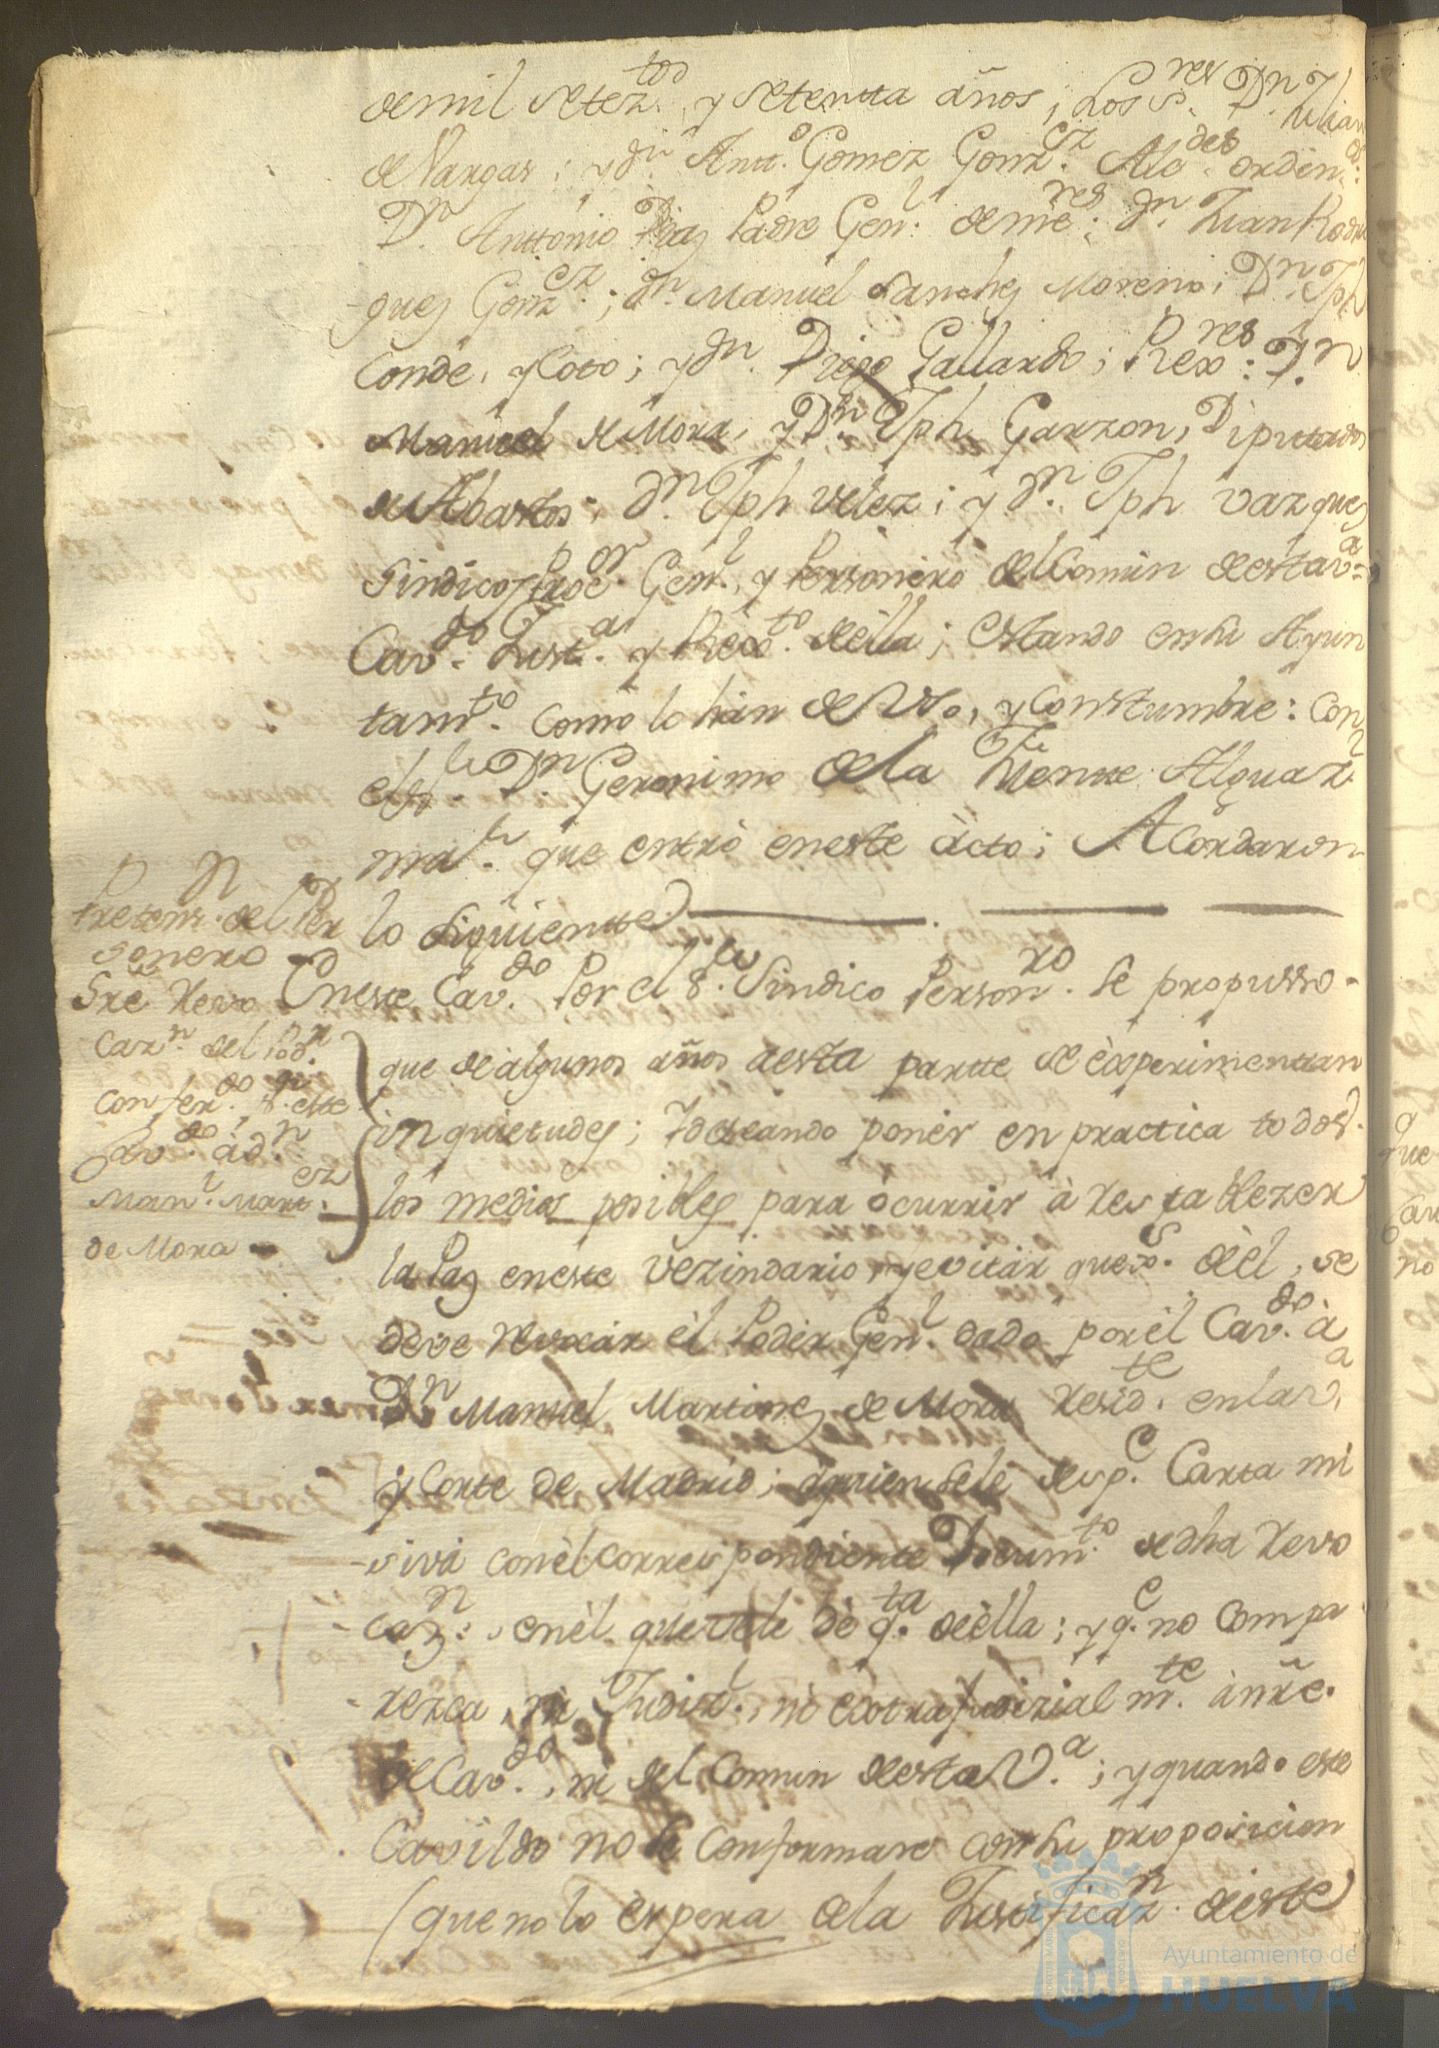 de mil setez.tos y setentta años, Los S.res D.n Julian
de Vargas; y d.n Antt.o Gomez Gonz.ez Alc.des ordin.os:
D.n Anttonio Diaz Padre Gen.l de me.res; d.n Juan Rodri
guez Gonz.ez; d.n Manuel Sanchez Moreno; D.n Jph
Conde, y Coto; y d.n Diego Gallardo; Rex.res: D.n
Manuel de Mora, y D.n Jph Garzon, Diputados
de Abastos; d.n Jph Velez; y d.n Jph Vazquez
Sindicos Proc.or Gen.l, y Personero del Comun de esta v.a=
Cav.do Just.a y Rex.to de ella; Estando en su Ayun
tam.to como lo han de Uso, y Constumbre: con
el s.or D.n Geronimo de la Fuentte Alguaz.l
ma.or que entrò en este àcto; Acordaron
lo Siguientte
Pretens.n del Per
sonero
Sre Revo
caz.n del Pod.r
Confer.do p.r este
Cav.do à d.n
Man.l Mart.ez
de Mora
En este Cav.do Por el S.or Sindico Person.ro se propusso
que de àlgunos años a esta partte se èxperimentan
inquietudes; Y deseando ponèr en practica todos
los medios posibles para ocurrir à restablezer
la Paz en este vezindario, y evitàr quex.s de èl, se
deve revocàr èl Podèr Gen.l dado por èl Cav.do à
D.n Manuel Martinez de Mora resid.te en la v.a
y Corte de Madrid; àquien se le desp.e Carta mi
siva con èl correspondiente Docum.to de dha Revo
caz.n, en èl que se le dè q.ta de èlla; y q.e no compa
rezca, ni Judiz.l, ni extrajudizialm.te à nre.
de Cav.do, ni del Comun de esta V.a; y quando este
Cavildo no se conformare con su proposicion
(que no lo èspera de la Justificaz.n de este
Ayuntamiento de
HUELVA